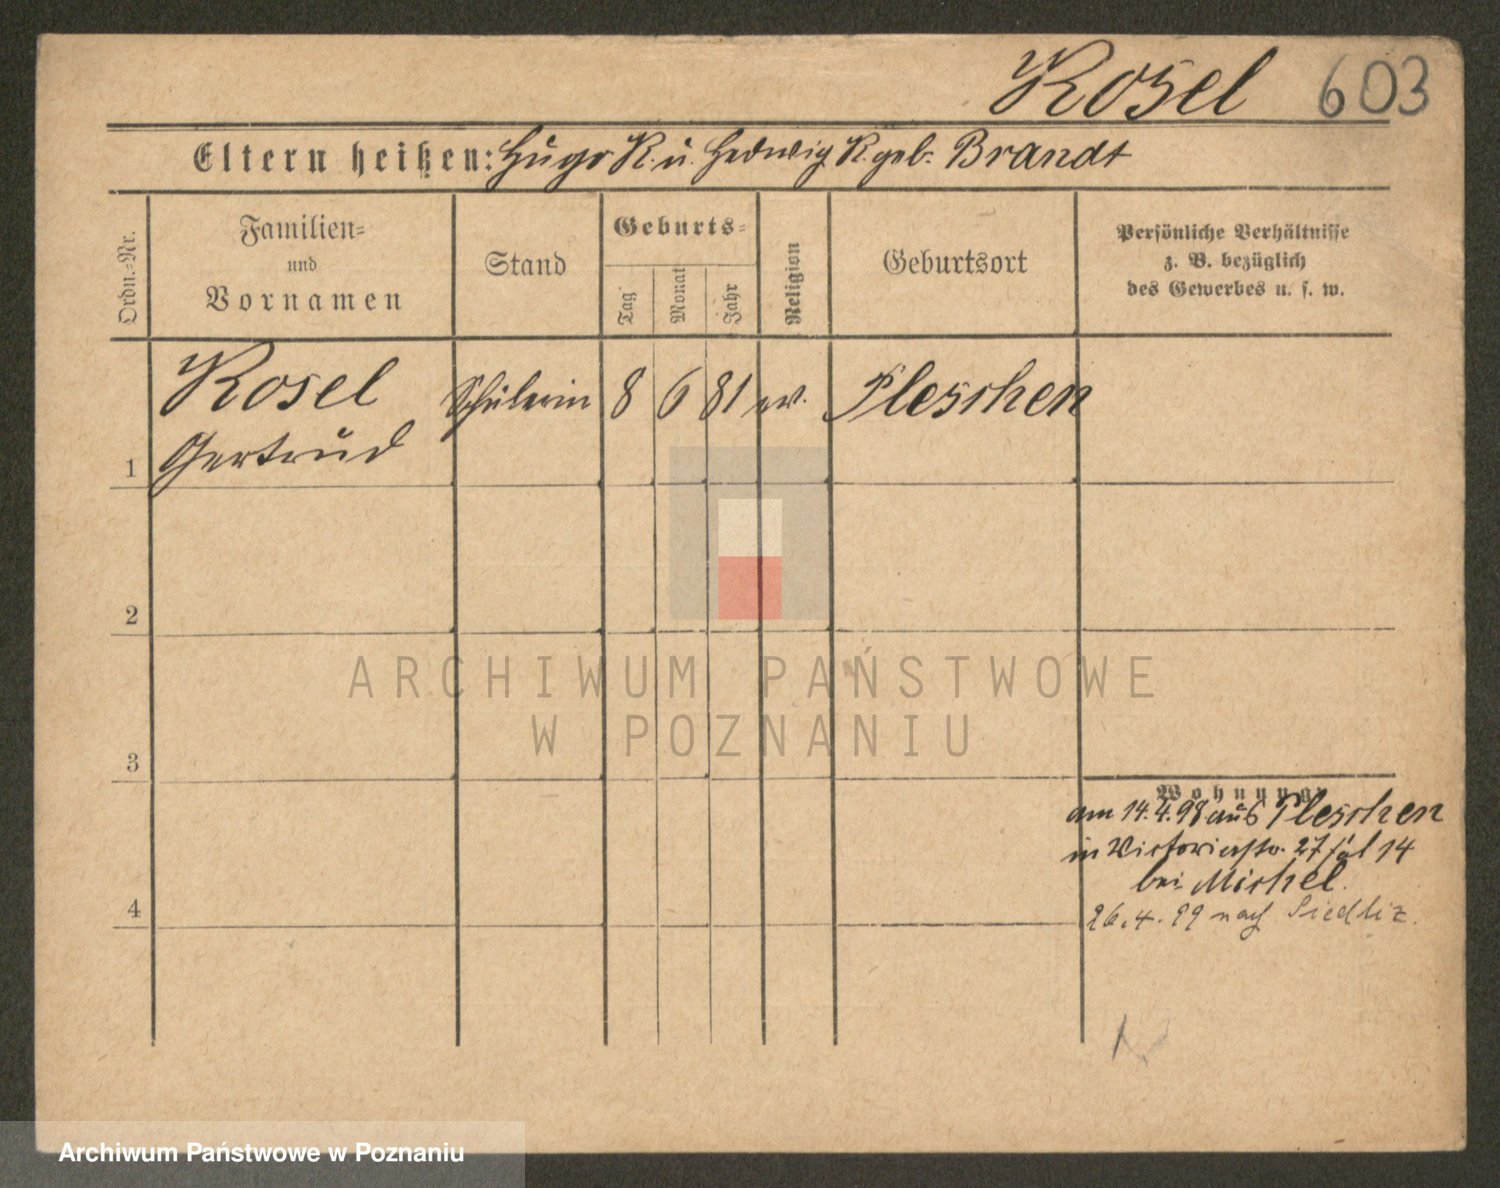 Rosel 603
Eltern heißen: Hugo R. u. Hedwig R. geb. Brandt
Ordn.-Nr.
Familien-
und
Vornamen
Stand
Geburts-
Tag
Monat
Jahr
Religion
Geburtsort
Persönliche Verhältnisse
z. B. bezüglich
des Gewerbes u. s. w.
Rosel Schülerin 8 6 81 ev. Pleschen
1 Gertrud
2
3
ARCHIWUM PAŃSTWOWE
W POZNANIU
Wohnung
am 14.4.98 aus Pleschen
in Victoriastr. 27 14
bei Michel.
4
26.4.99 nach Siedliz.
Archiwum Państwowe w Poznaniu